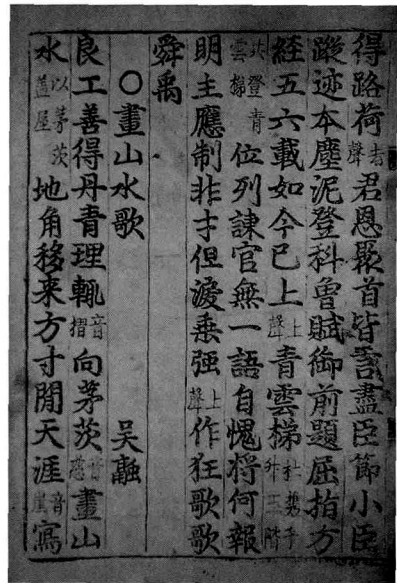 得路荷去聲君恩聚首皆言盡臣節小臣
蹤迹本塵泥登科曾賦御前題屈指方
経五六載如今已上上聲青雲梯
共登青雲梯位列諫官無一語自愧将何報
明主應制非才但乗强上聲作狂歌歌
舜禹
○畫山水歌 吴融
良工善得丹青理輒音摺向茅茨音慈畫山
水以茅茨盖屋地角移来方寸閒天涯音崖寫